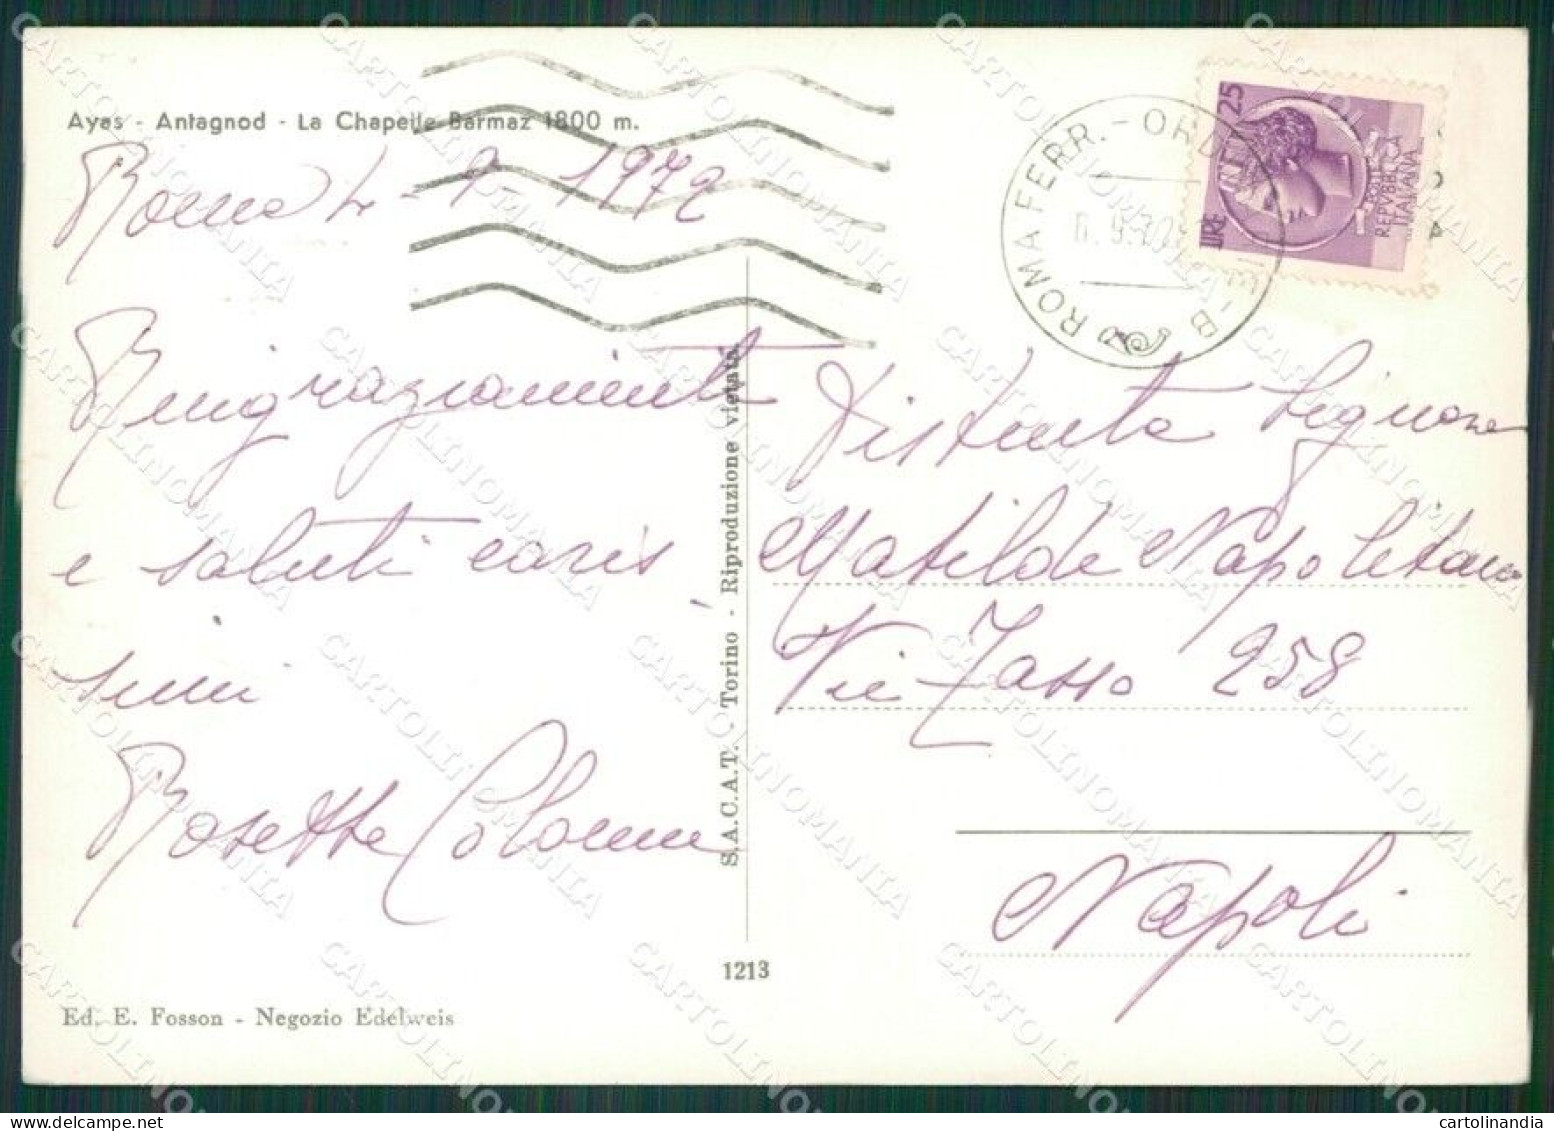 Ayas - Antagnod - La Chapelle Barmaz 1800 m.
Roma 4 - 9 - 1972
Ringraziamenti
e saluti caris
simi
Rosetta Colonna
S.A.C.A.T. - Torino - Riproduzione vietata
1213
Ed. E. Fosson - Negozio Edelweis
ROMA FERR. - ORD
- B
LIRE 25
POSTE
REPVBBLICA
ITALIANA
Distinta Signora
Matilde Napolitano
Via Tasso 258
Napoli
CARTOLINOMANIA
cartolinandia